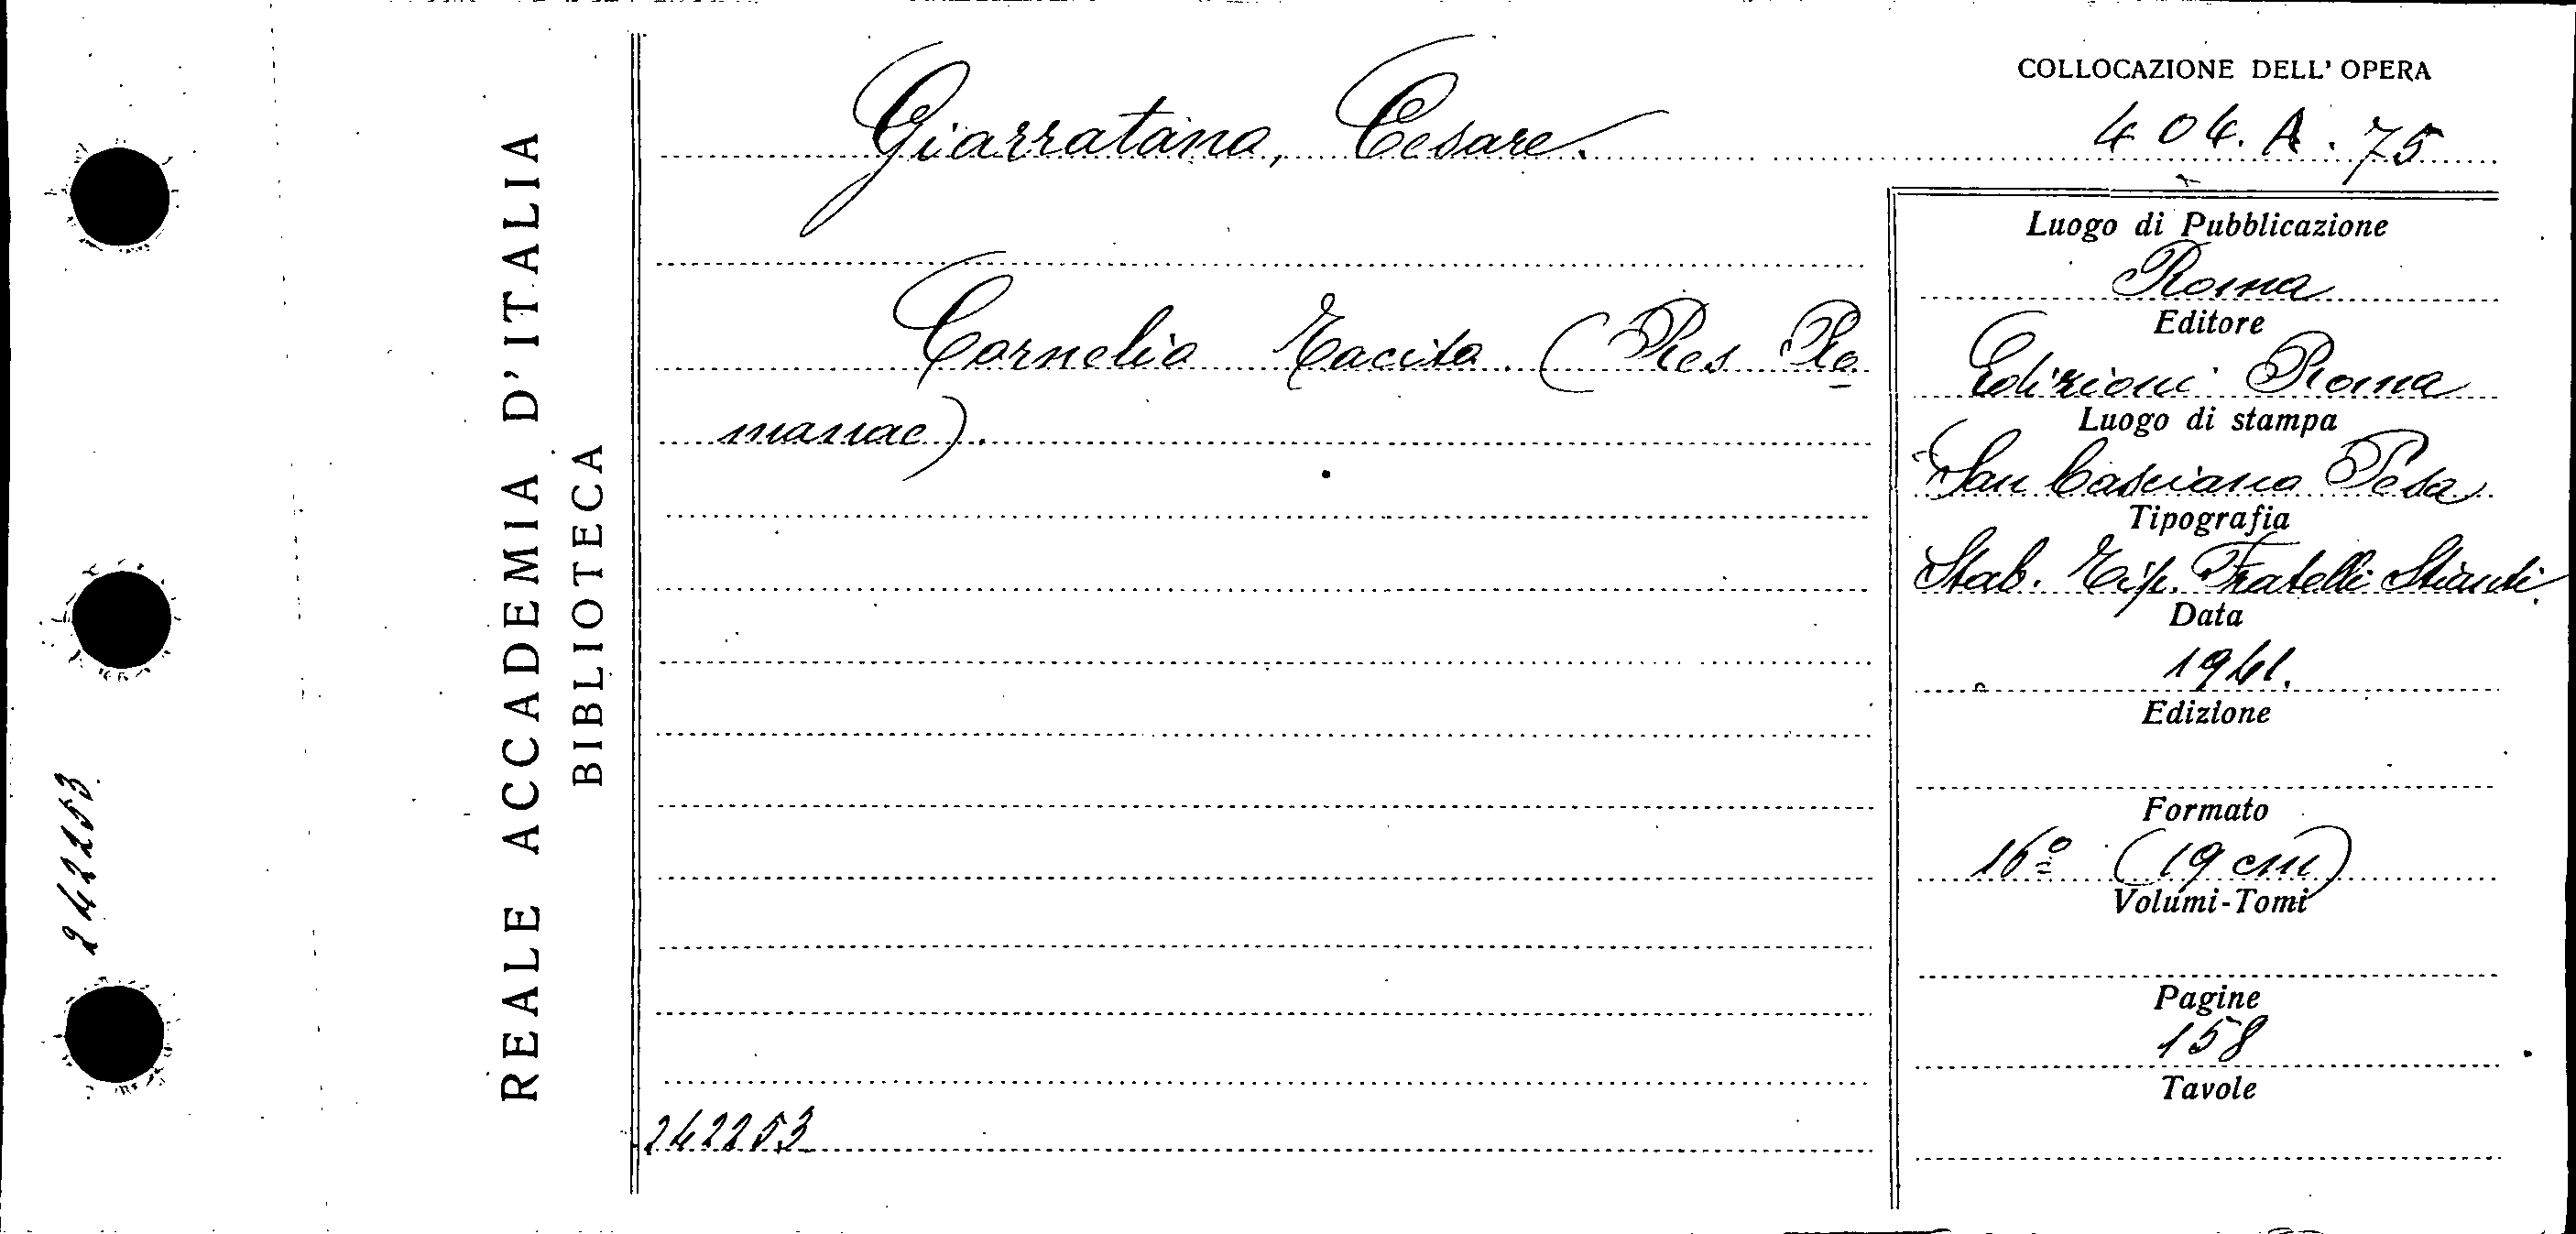 242253
REALE ACCADEMIA D'ITALIA
BIBLIOTECA
Giarratano, Cesare.
Cornelio Tacito. (Res Ro
manae).
242253
COLLOCAZIONE DELL' OPERA
404. A. 75
Luogo di Pubblicazione
Roma
Editore
Edizioni Roma
Luogo di stampa
San Casciano Pesa
Tipografia
Stab. Tip. Fratelli Stianti
Data
1941.
Edizione
Formato
16º (19 cm)
Volumi-Tomi
Pagine
158
Tavole